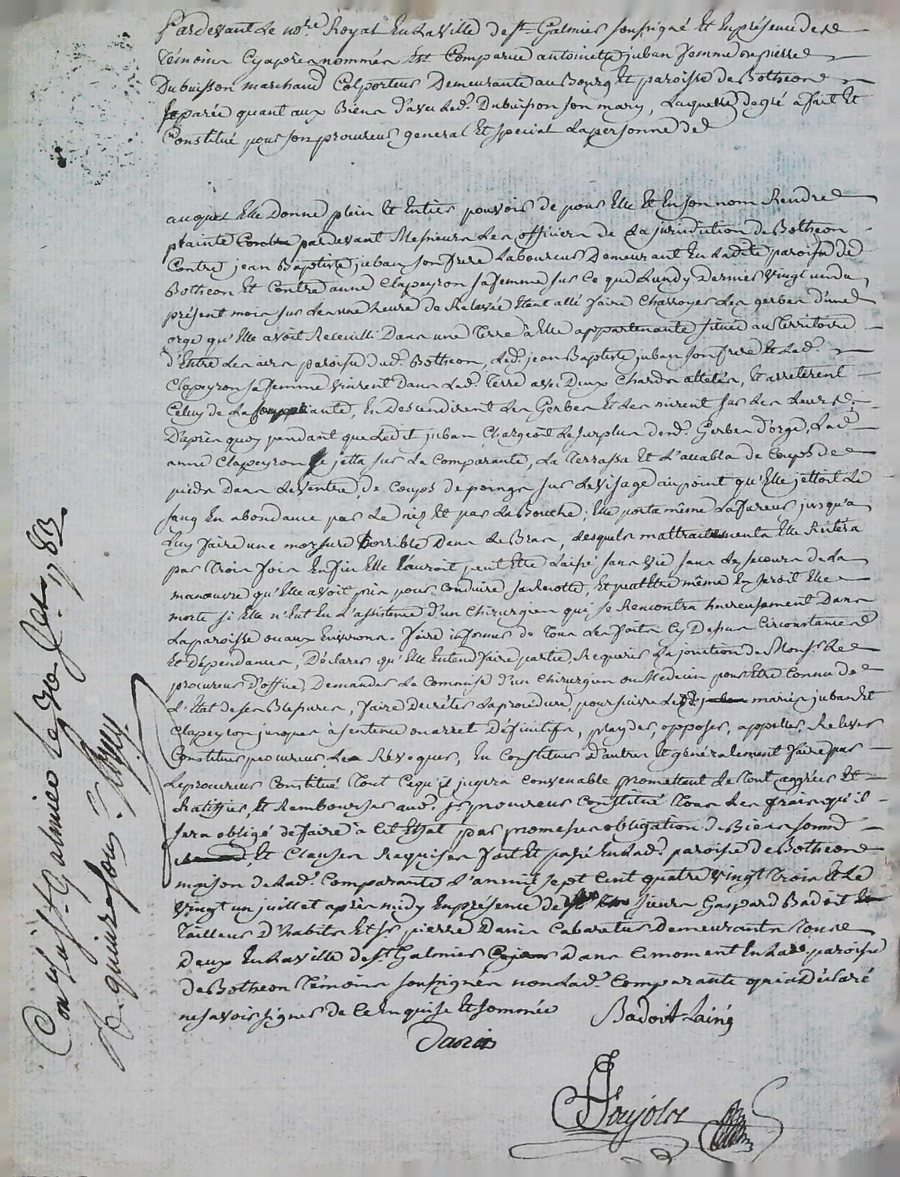 Pardevant Le no.re Royal En La ville de St. Galmier soussigné Et En présence de
témoins Cy après nommés Est Comparue antoinette juban femme de pierre
Dubuisson marchand Colporteur Demeurante au Bourg Et paroisse de Botheon
separée quant aux Biens d'avec Led. Dubuisson son mary, Laquelle de gré a fait Et
Constitué pour son procureur general Et special La personne de
auquel Elle Donne plein Et Entier pouvoir de pour Elle Et En son nom Rendre
plainte pardevant Messieurs Les officiers de La jurisdiction de Botheon
Contre jean Baptiste juban son frere Laboureur Demeurant En Ladite paroisse de
Botheon Et Contre anne Clapeyron sa femme sur Ce que Lundy Dernier vingt un du
présent mois sur Les une heure de Relevée Etant allé faire Charroyer Les gerbes d'une
orge qu'Elle avoit Recueilli Dans une terre à Elle appartenante située au territoire
d'Entre Les aires paroisse dud. Botheon, Led. jean Baptiste juban son frere Et Lad.
Clapeyron sa femme vinrent Dans Lad. terre avec Deux Chards attelés, Et arrêterent
Celuy de La suppliante, En Descendirent Les Gerbes Et Les mirent sur Les Leurs
D'après quoy pendant que Ledit juban Chargeoit Le surplus desd. Gerbes d'orge, Lad.
anne Clapeyron se jetta sur La Comparante, La terrassa Et L'accabla de Coups de
pieds Dans Le ventre, de Coups de poings sur Le visage au point qu'Elle jettoit Le
sang En abondance par Le nez Et par La Bouche; Elle porta même La fureur jusqu'a
Luy faire une morsure horrible Dans Le Bras, Lesquels maltraitements Elle Reitera
par trois fois Enfin Elle L'auroit peut Etre Laissé sans vie sans Le secours de La
manœuvre qu'Elle avoit pris pour Conduire sa Récolte, Et peut Etre même En seroit Elle
morte si Elle n'Eut Eu L'assistance d'un Chirurgien qui se Rencontra heureusement Dans
La paroisse ou aux Environs. faire informer de tous Les faits Cy Dessus Circonstances
Et Dépendances, Déclarer qu'Elle Entend faire partie, Requerir La jonction de Mons.r Le
procureur d'office, Demander La Commise d'un Chirurgien ou Médecin pour Etre Connu de
L'Etat de ses Blessures, faire Decréter La procédure, poursuivre mariés juban Et
Clapeyron jusques à sentence ou arret Définitifs, plaider, opposer, appeller, Relever
Constituer procureur Les Révoquer, En Constituer d'autres Et généralement faire par
Le procureur Constitué tout Ce qu'il jugera Convenable promettant Le tout aggréer Et
Ratiffier, Et Rembourser aud. Sr. procureur Constitué tous Les frais qu'il
sera obligé de faire à Cet Effet par promesses obligation de Biens soumd.
Et Clauses Requises fait Et passé En Lad. paroisse de Botheon
maison de Lad. Comparante L'an mil sept Cent quatre vingt trois Et Le
vingt un juillet après midy En présence de sieurs Gaspard Badoit
tailleur D'habits Et Sr. pierre Danis Cabaretier Demeurants tous
Deux En La ville de St. Galmier Dans Ce moment En Lad. paroisse
de Botheon témoins soussignés non Lad. Comparante qui a Déclaré
ne savoir signer de Ce Enquise Et sommée
Badoit Lainé
Danis
Poujolz
Con.lé a St. Galmier Le 1783
R. quinze sous.